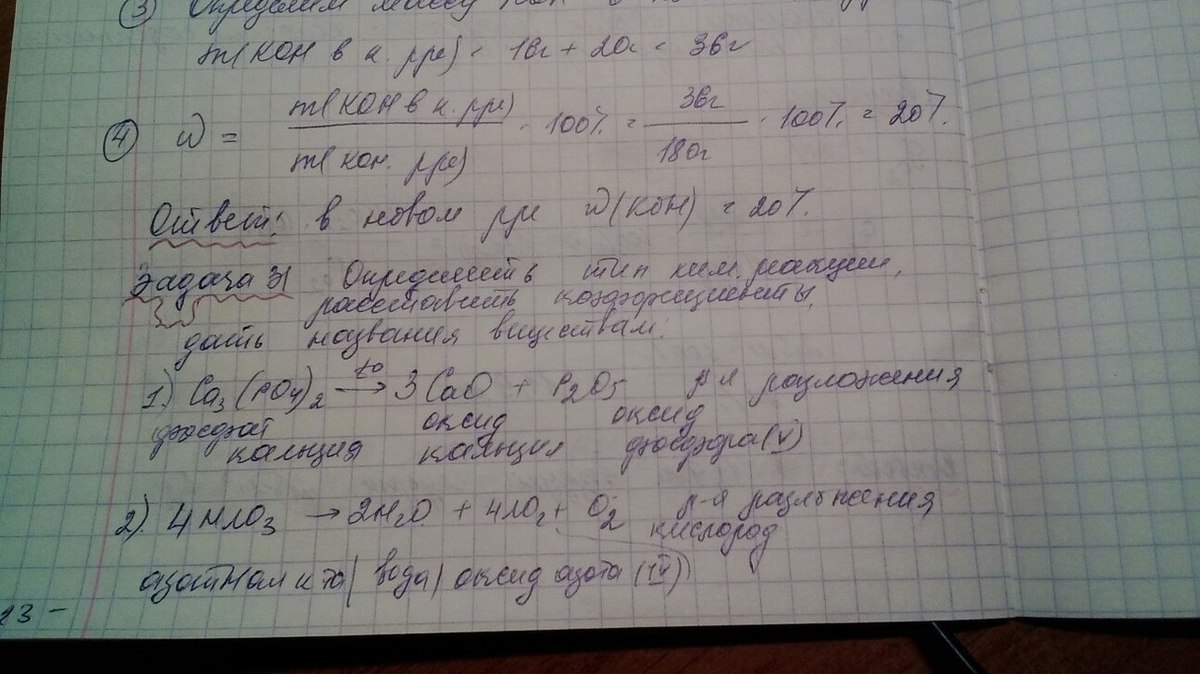 ③ Определим массу KOH в
m(KOH в к. рре) = 16г + 20г = 36г
④ W = m(KOH в к. рре) / m(кон. рре) · 100% = 36г / 180г · 100% = 20%.
Ответ: в новом рре W(KOH) = 20%.
Задача 3| Определить тип хим. реакции,
расставить коэффициенты,
дать названия веществам:
1) Ca₃(PO₄)₂ →t° 3CaO + P₂O₅ р-я разложения
фосфат оксид оксид
кальция кальция фосфора (V)
2). 4HNO₃ → 2H₂O + 4NO₂ + O₂ р-я разложения
кислород
азотная к-та | вода | оксид азота (IV)
23 –